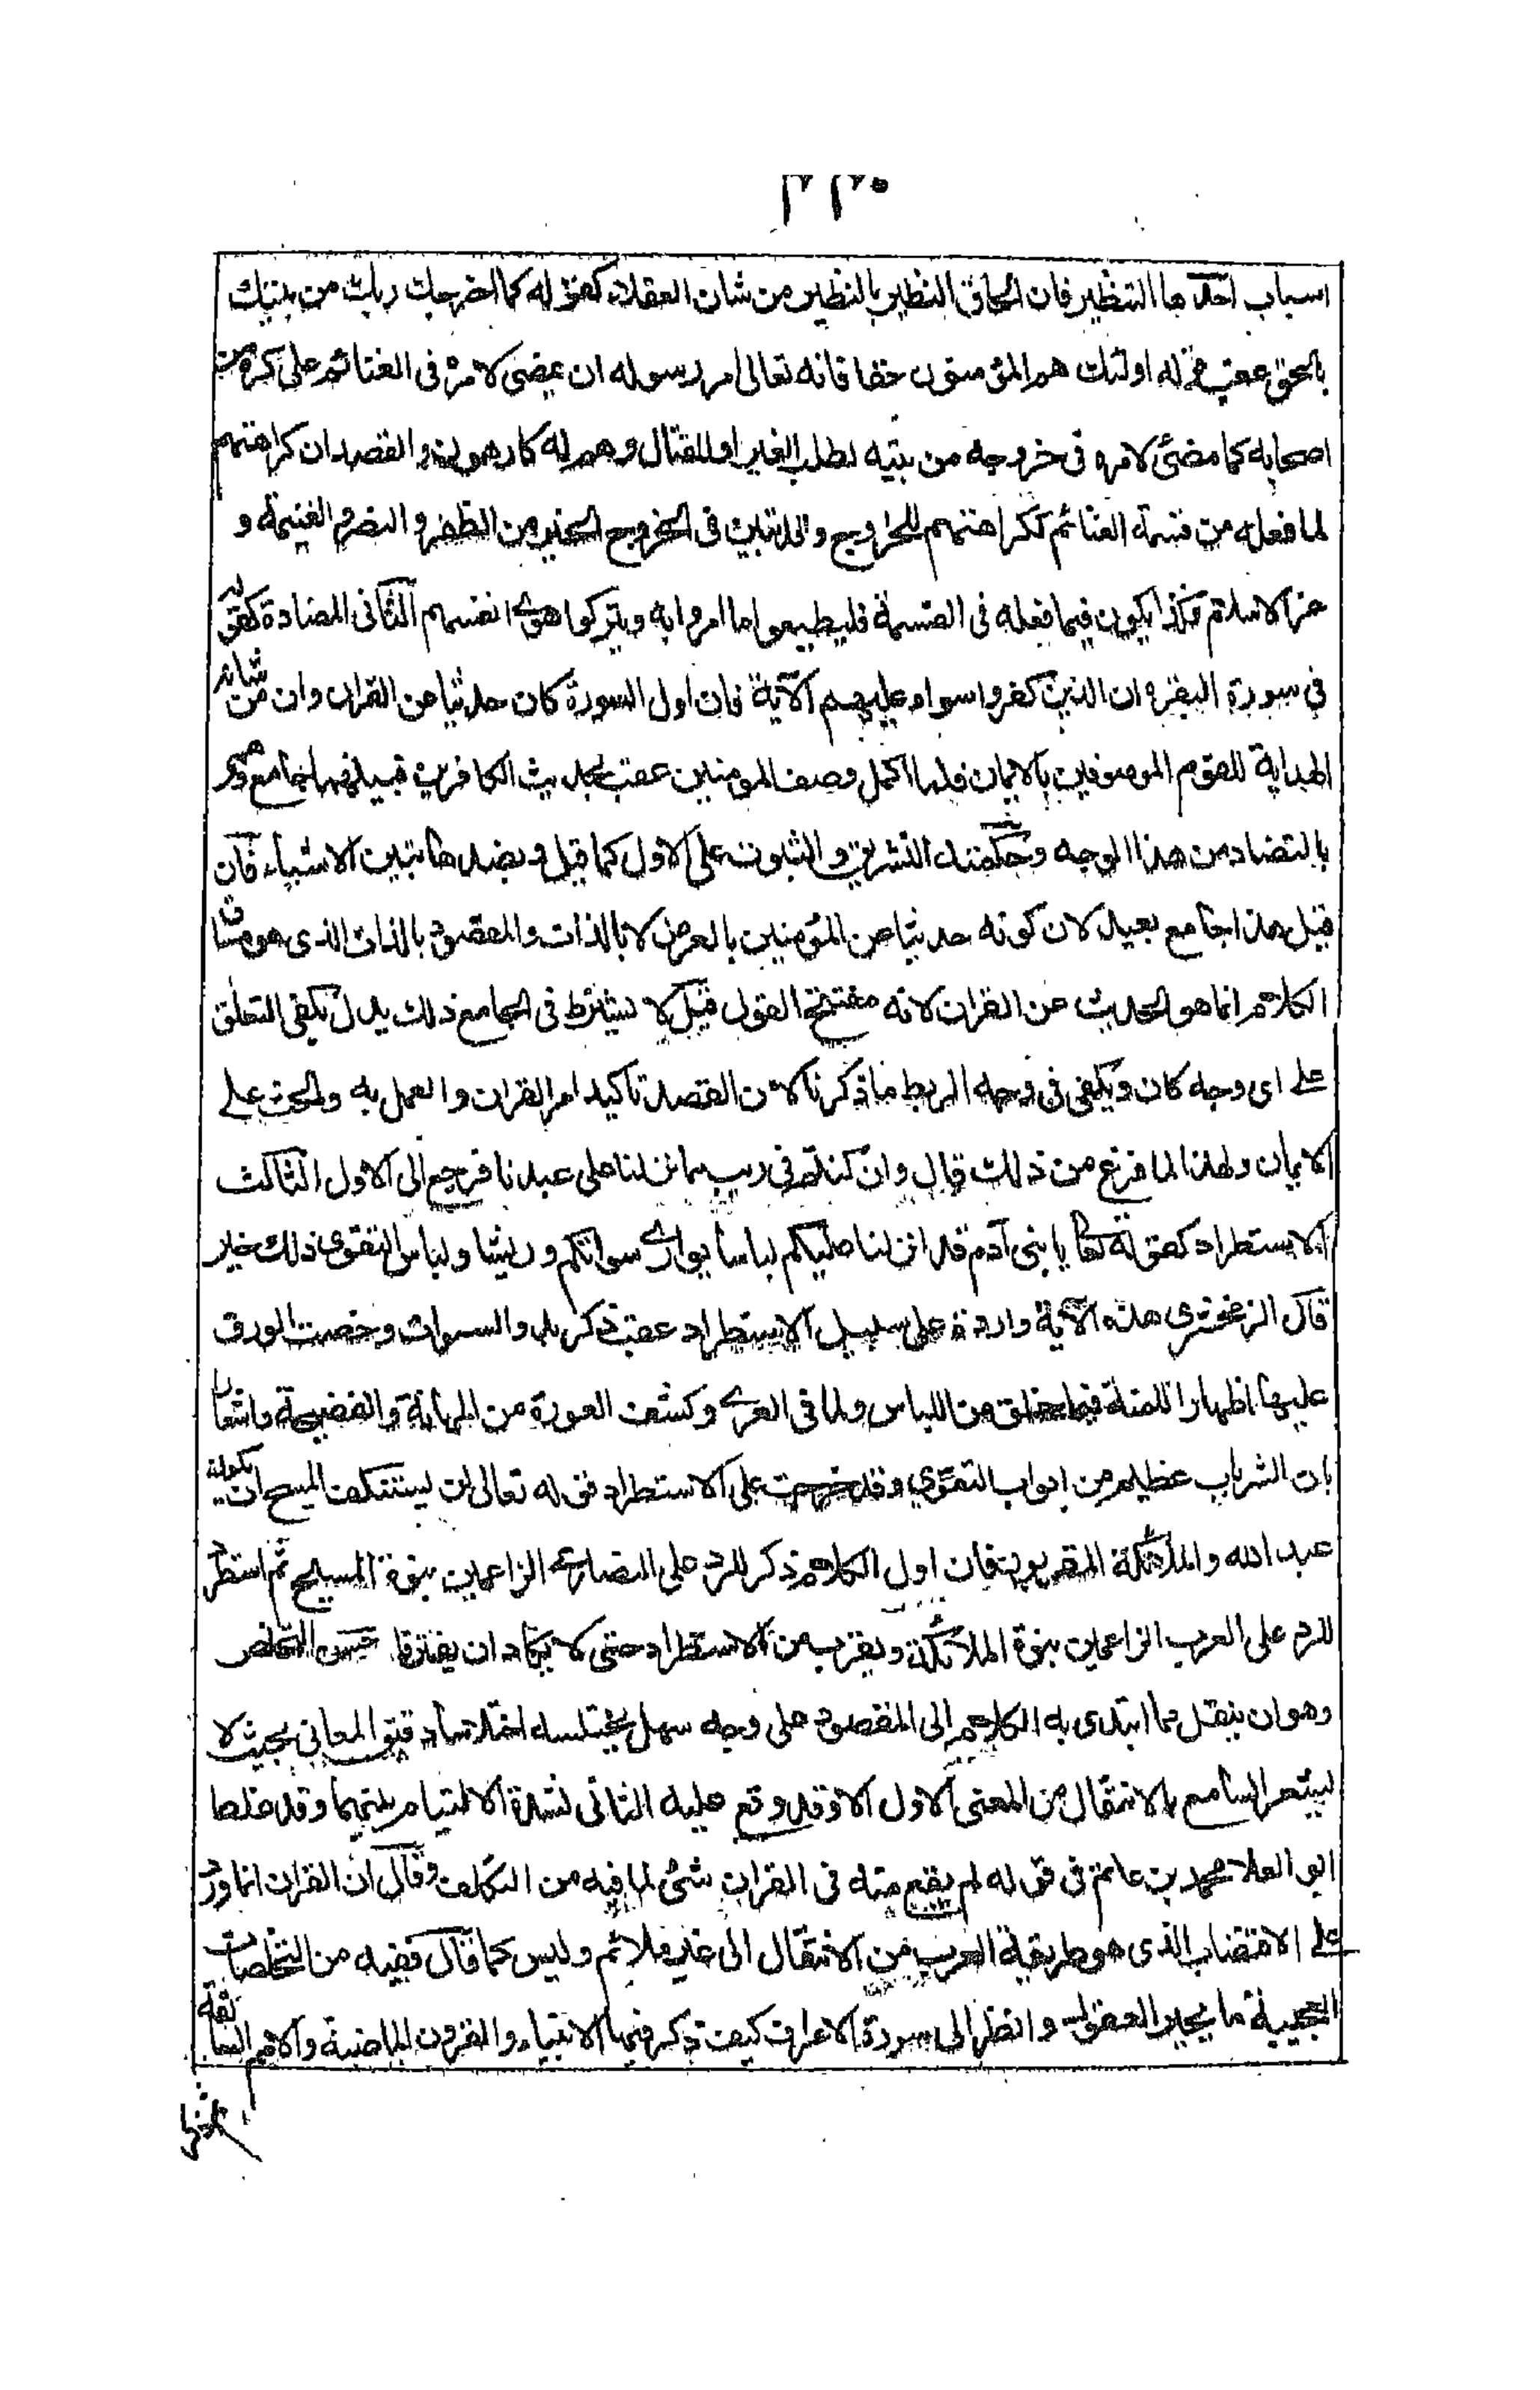 ٢٢٠
اسباب احدها التنظير فان الحاق النظير بالنظير من شان العقلاء كقوله كما اخرجك ربك من بيتك
بالحق عقب قوله اولئك هم المؤمنون حقا فانه تعالى امر رسوله ان يمضى لامره فى الغنائم على كره من
اصحابه كما مضى لامره فى خروجه من بيته لطلب العير او للقتال وهم له كارهون والقصد ان كراهتهم
لما فعله من قسمة الغنائم ككراهتهم للخروج وقد تبين فى الخروج الخير من الظفر والنصر والغنيمة و
عز الاسلام فكذا يكون فيما فعله فى القسمة فليطيعوا ما امروا به ويتركوا هوى انفسهم الثانى المضادة كقوله
فى سورة البقرة ان الذين كفروا سواء عليهم الآية فان اول السورة كان حديثا عن القران وان من شانه
الهداية للقوم الموصوفين بالايمان فلما اكمل وصف المومنين عقب بحديث الكافرين فبينهما جامع وهمى
بالتضاد من هذا الوجه وحكمته التشويق والثبوت على الاول كما قيل وبضدها تتبين الاشياء فان
قيل هذا جامع بعيد لان كونه حديثا عن المؤمنين بالعرض لا بالذات والمقصود بالذات الذى هو مساق
الكلام انما هو الحديث عن القران لانه مفتتح القول قيل لا يشترط فى الجامع ذلك بل يكفى التعلق
على اى وجه كان ويكفى فى وجه الربط ما ذكرنا لان القصد تاكيد امر القران والعمل به والحث على
الايمان ولهذا لما فرغ من ذلك قال وان كنتم فى ريب مما نزلنا على عبدنا فرجع الى الاول الثالث
الاستطراد كقوله تعالى يا بنى آدم قد انزلنا عليكم لباسا يوارى سواتكم وريشا ولباس التقوى ذلك خير
قال الزمخشرى هذه الآية واردة على سبيل الاستطراد عقب ذكر بدو السوات وخصف الورق
عليها اظهارا للمنة فيما خلق من اللباس ولما فى العرى وكشف العورة من المهانة والفضيحة واشعارا
بان الستر باب عظيم من ابواب التقوى وقد خرجت على الاستطراد قوله تعالى لن يستنكف المسيح ان يكون
عبد الله والملائكة المقربون فان اول الكلام ذكر للرد على النصارى الزاعمين بنوة المسيح ثم استطرد
للرد على العرب الزاعمين بنوة الملائكة ويقرب من الاستطراد حتى لا يكاد ان يفترقا حسن التخلص
وهو ان ينتقل مما ابتدى به الكلام الى المقصود على وجه سهل يختلسه اختلاسا دقيق المعانى بحيث لا
يشعر السامع بالانتقال من المعنى الاول الا وقد وقع عليه الثانى لشدة الالتيام بينهما وقد غلط
ابو العلا محمد بن غانم فى قوله لم يقع منه فى القران شئ لما فيه من التكلف وقال ان القران انما ورد
على الاقتضاب الذى هو طريقة العرب من الانتقال الى غير ملائم وليس كما قال ففيه من التخلصات
العجيبة ما يحير العقول وانظر الى سورة الاعراف كيف ذكر فيها الانبياء والقرون الماضية والامم السالفة